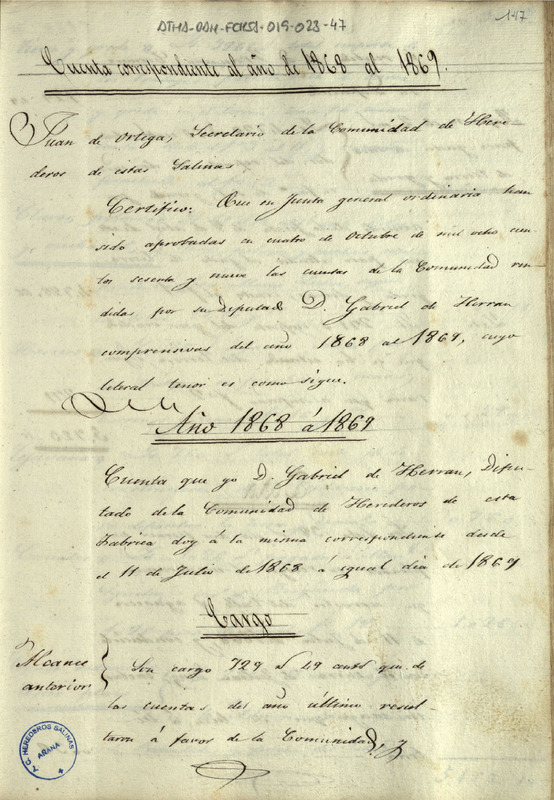 ATHA-DAH-FCHSA-019-023-47
147
Cuenta correspondiente al año de 1868 al 1869.
Juan de Ortega, Secretario de la Comunidad de Here-
deros de estas Salinas
Certifico: Que en Junta general ordinaria han
sido aprobadas en cuatro de Octubre de mil ocho cien-
tos sesenta y nueve las cuentas de la Comunidad ren-
didas por su Diputado D. Gabriel de Herran
comprensivas del año 1868 al 1869, cuyo
literal tenor es como sigue.
Año 1868 á 1869
Cuenta que yo D. Gabriel de Herran, Dipu-
tado de la Comunidad de Herederos de esta
Fabrica doy á la misma correspondiente desde
el 11 de Julio de 1868 á igual dia de 1869
Cargo
Alcance
anterior
Son cargo 729 49 que de
las cuentas del año último resul-
taron á favor de la Comunidad, y
T.C. HEREDEROS SALINAS
AÑANA